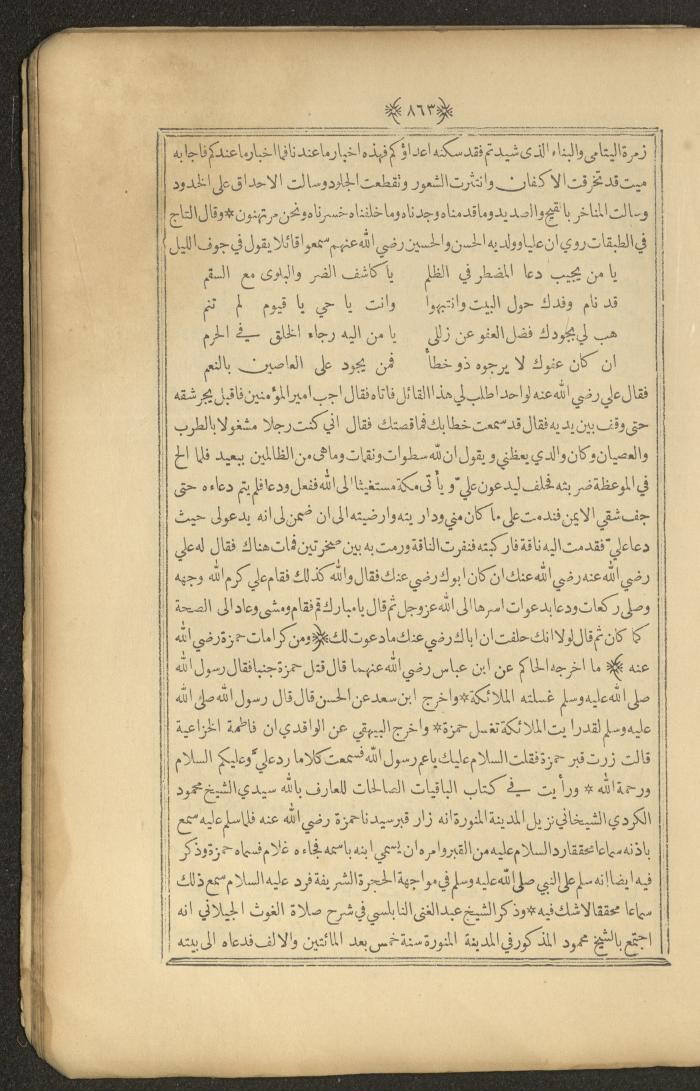 ٨٦٣
زمرة اليتامى والبناء الذى شيدتم فقد سكنه اعداؤكم فهذه اخبار ما عندنا فما اخبار ما عندكم فاجابه
ميت قد تخرقت الاكفان وانتثرت الشعور وتقطعت الجلود وسالت الاحداق على الخدود
وسالت المناخر بالقيح والصديد وما قدمناه وجدناه وما خلفناه خسرناه ونحن مرتهنون * وقال التاج
في الطبقات روي ان عليا وولديه الحسن والحسين رضي الله عنهم سمعوا قائلا يقول في جوف الليل
يا من يجيب دعا المضطر في الظلم يا كاشف الضر والبلوى مع السقم
قد نام وفدك حول البيت وانتبهوا وانت يا حي يا قيوم لم تنم
هب لي بجودك فضل العفو عن زللى يا من اليه رجاء الخلق في الحرم
ان كان عفوك لا يرجوه ذو خطأ فمن يجود على العاصين بالنعم
فقال علي رضي الله عنه لواحد اطلب لي هذا القائل فاتاه فقال اجب امير المؤمنين فاقبل يجر شقه
حتى وقف بين يديه فقال قد سمعت خطابك فما قصتك فقال اني كنت رجلا مشغولا بالطرب
والعصيان وكان والدي يعظني ويقول ان لله سطوات ونقمات وما هى من الظالمين ببعيد فلما الح
في الموعظة ضربته فحلف ليدعون عليّ ويأتى مكة مستغيثا الى الله ففعل ودعا فلم يتم دعاءه حتى
جف شقي الايمن فندمت على ما كان مني وداريته وارضيته الى ان ضمن لى انه يدعولى حيث
دعا عليّ فقدمت اليه ناقة فاركبته فنفرت الناقة ورمت به بين صخرتين فمات هناك فقال له علي
رضي الله عنه رضي الله عنك ان كان ابوك رضي عنك فقال والله كذلك فقام علي كرم الله وجهه
وصلى ركعات ودعا بدعوات اسرها الى الله عز وجل ثم قال يا مبارك قم فقام ومشى وعاد الى الصحة
كما كان ثم قال لولا انك حلفت ان اباك رضي عنك ما دعوت لك ﴿ ومن كرامات حمزة رضي الله
عنه ﴾ ما اخرجه الحاكم عن ابن عباس رضي الله عنهما قال قتل حمزة جنبا فقال رسول الله
صلى الله عليه وسلم غسلته الملائكة * واخرج ابن سعد عن الحسن قال قال رسول الله صلى الله
عليه وسلم لقد رايت الملائكة تغسل حمزة * واخرج البيهقي عن الواقدي ان فاطمة الخزاعية
قالت زرت قبر حمزة فقلت السلام عليك ياعم رسول الله فسمعت كلاما رد عليّ وعليكم السلام
ورحمة الله * ورأيت في كتاب الباقيات الصالحات للعارف بالله سيدي الشيخ محمود
الكردي الشيخاني نزيل المدينة المنورة انه زار قبر سيدنا حمزة رضي الله عنه فلما سلم عليه سمع
باذنه سماعا محققا رد السلام عليه من القبر وامره ان يسمي ابنه باسمه فجاءه غلام فسماه حمزة وذكر
فيه ايضا انه سلم على النبي صلى الله عليه وسلم في مواجهة الحجرة الشريفة فرد عليه السلام سمع ذلك
سماعا محققا لاشك فيه * وذكر الشيخ عبد الغنى النابلسي في شرح صلاة الغوث الجيلاني انه
اجتمع بالشيخ محمود المذكور في المدينة المنورة سنة خمس بعد المائتين والالف فدعاه الى بيته